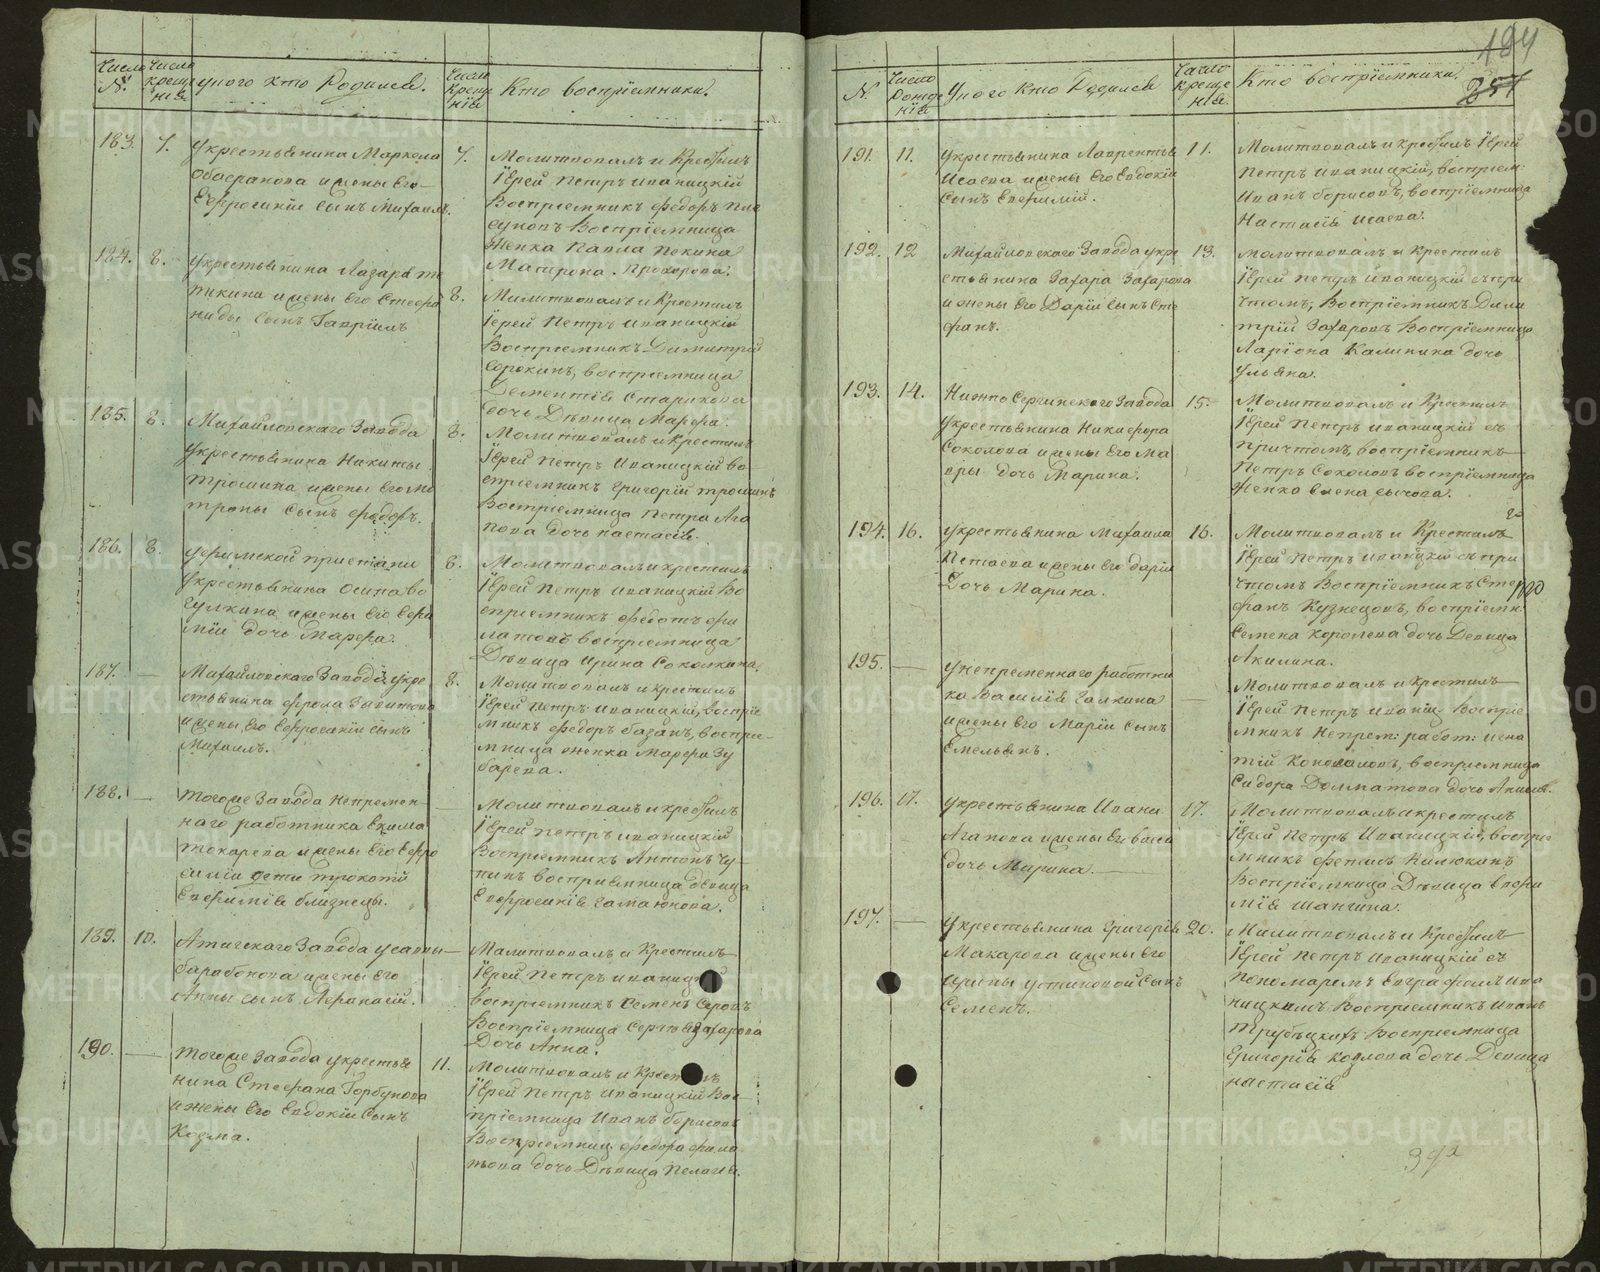 194
257
Число Число
№ креще
нія
У кого кто Родился.
Число
креще
нія
Кто воспріемники.
183. 7.
Укрестьянина Маркела
и жены Его
Ефросиніи сынъ Михаилъ.
7.
Молитвовалъ и Крестилъ
Іерей Петръ Иваницкій
Воспріемникъ Федоръ
Воспріемница
Женка Павла Пекина
Матрона Прохорова.
184. 8.
Укрестьянина Лазаря
и жены Его Стефа
ниды сынъ Гавріилъ
8.
Молитвовалъ и Крестилъ
Іерей Петръ Иваницкій
Воспріемникъ Димитрій
Сорокинъ, воспріемница
Дементія Старикова
дочь Дѣвица Марфа.
185. 8.
Михайловскаго Завода
Укрестьянина Никиты
Трошина и жены Его Ма
троны сынъ Федоръ.
8.
Молитвовалъ и Крестилъ
Іерей Петръ Иваницкій во
спріемникъ Григорій Трошинъ
Воспріемница Петра Ага
пова дочь Настасія.
186. 8.
Уфимской пристани
Укрестьянина Осипа Во
гулкина и жены Его Ефи
міи дочь Марфа.
8.
Молитвовалъ и крестилъ
Іерей Петръ Иваницкій Во
спріемникъ Федотъ Фи
латовъ воспріемница
Дѣвица Ирина Соколкина.
187. —
Михайловскаго Завода Укре
стьянина Фрола Запитова
и жены Его Ефросиніи сынъ
Михаилъ.
8.
Молитвовалъ и крестилъ
Іерей Петръ Иваницкій, воспріе
мникъ Федоръ базанъ, воспрі-
мница женка Марфа Зу
барева.
188. —
Тогоже Завода Непремен-
наго работника Екима
Токарева и жены Его Ефро
синіи дети Трокотій
Евфимія близнецы.
Молитвовалъ и крестилъ
Іерей Петръ Иваницкій
Воспріемникъ Антонъ Чу-
пинъ воспріемница девица
Ефросинія Гамаюнова.
189. 10.
Атигскаго Завода Усаввы
барабонова и жены Его
Анны сынъ Афанасій.
Малитвовалъ и Крестилъ
Іерей Петръ Иваницкій
воспріемникъ Семенъ Серовъ
Воспріемница Сергѣя Захарова
Дочь Анна.
190. —
Тогоже Завода Укрестья
нина Стефана Горбунова
и жены Его Евдокіи Сынъ
Козма.
11.
Молитвовалъ и Крестилъ
Іерей Петръ Иваницкій Вос-
пріемница Иванъ борисовъ
Воспріемниц Федора Фила
това дочь Дѣвица Пелагія.
№.
Число
Рожде
нія
У кого Кто Родился
Число
Креще
нія.
Кто воспріемники.
191. 11.
Укрестьянина Лаврентья
Исаева и жены Его Евдокіи
Сынъ Евфимій.
11.
Молитвовалъ и крестилъ Іерей
Петръ Иваницкій, воспріем.
Иванъ борисовъ, воспріемница
Настасія Исаева.
192. 12
Михайловскаго Завода укре
стьянина Захара Захарова
и жены Его Даріи сынъ Сте
фанъ.
13.
Молитвовалъ и Крестилъ
Іерей Петръ Иваницкій съ при
чтомъ, Воспріемникъ Дими
трій Захаровъ Воспріемница
Ларіона Калинина дочь
Ульяна.
193. 14.
Нижно Сергинскаго Завода
Укрестьянина Никифора
Соколова и жены Его Ма
вры дочь Марина.
15.
Молитвовалъ и Крестилъ
Іерей Петръ Иваницкій съ
причтомъ, воспріемникъ
Петръ Соколовъ воспріемница
Женка Елена сычова.
194. 16.
Укрестьянина Михаила
Петаева и жены Его Даріи
Дочь Марина.
16.
Молитвовалъ и Крестилъ
Іерей Петръ Иваницкій съ при
чтомъ Воспріемникъ Сте
фанъ Кузнецовъ, воспріемн.
Семена Королева дочь Девица
Акилина.
195. —
Унепременнаго работни
ка Василія Галкина
и жены Его Маріи сынъ
Емельянъ.
—
Молитвовалъ и крестилъ
Іерей Петръ Иваниц. Воспріе
мникъ Непрем: работ: Игна
тій Коновалов, воспріемница
Сидора Долматова дочь Анисія.
196. 17.
Укрестьянина Ивана
Агапова и жены Его Васси
дочь Марина. —
17.
Молитвовалъ и крестилъ
Іерей Петръ Иваницкій, воспріе
мникъ Филипъ Килюкинъ
Воспріемница Дѣвица Евфи
мія Шангина.
197. —
Укрестьянина Григорія
Макарова и жены Его
Ирины Устиновой Сынъ
Семенъ.
20.
Милитвовалъ и Крестилъ
Іерей Петръ Иваницкій съ
пономаремъ Евграфомъ Ива
ницкимъ Воспріемникъ Иванъ
Трубѣцкихъ Воспріемница
Григорія Козлова дочь Девица
настасія